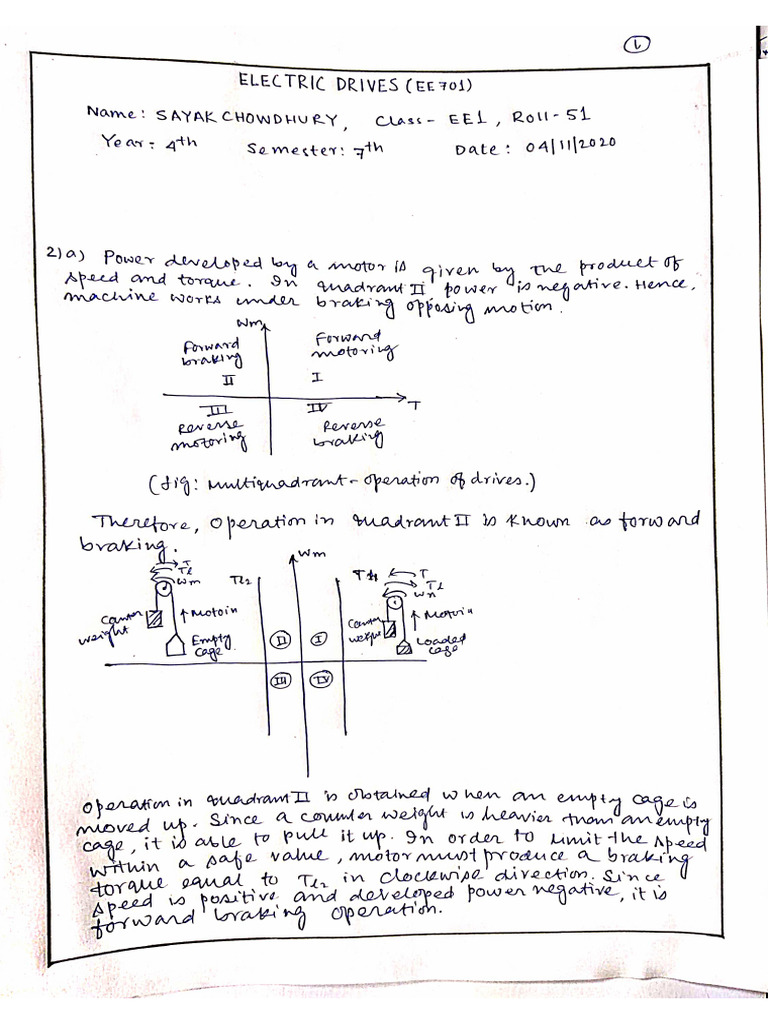 1
ELECTRIC DRIVES (EE701)
Name: SAYAK CHOWDHURY, Class- EE1, Roll-51
Year: 4th Semester: 7th Date: 04/11/2020
2)a) Power developed by a motor is given by the product of
speed and torque. In quadrant II power is negative. Hence,
machine works under braking opposing motion.
Wm
Forward braking
II
Forward motoring
I
T
III
Reverse motoring
IV
Reverse braking
(fig: Multiquadrant-operation of drives.)
Therefore, operation in quadrant II is known as forward
braking.
T
Tl
Wm
Tl2
Wm
T
Tl
Counter weight
Motoin
Empty cage
II
I
III
IV
Motoin
Loaded cage
Operation in quadrant II is obtained when an empty cage is
moved up. Since a counter weight is heavier than an empty
cage, it is able to pull it up. In order to limit the speed
within a safe value, motor must produce a braking
torque equal to Tl2 in clockwise direction. Since
speed is positive and developed power negative, it is
forward braking operation.